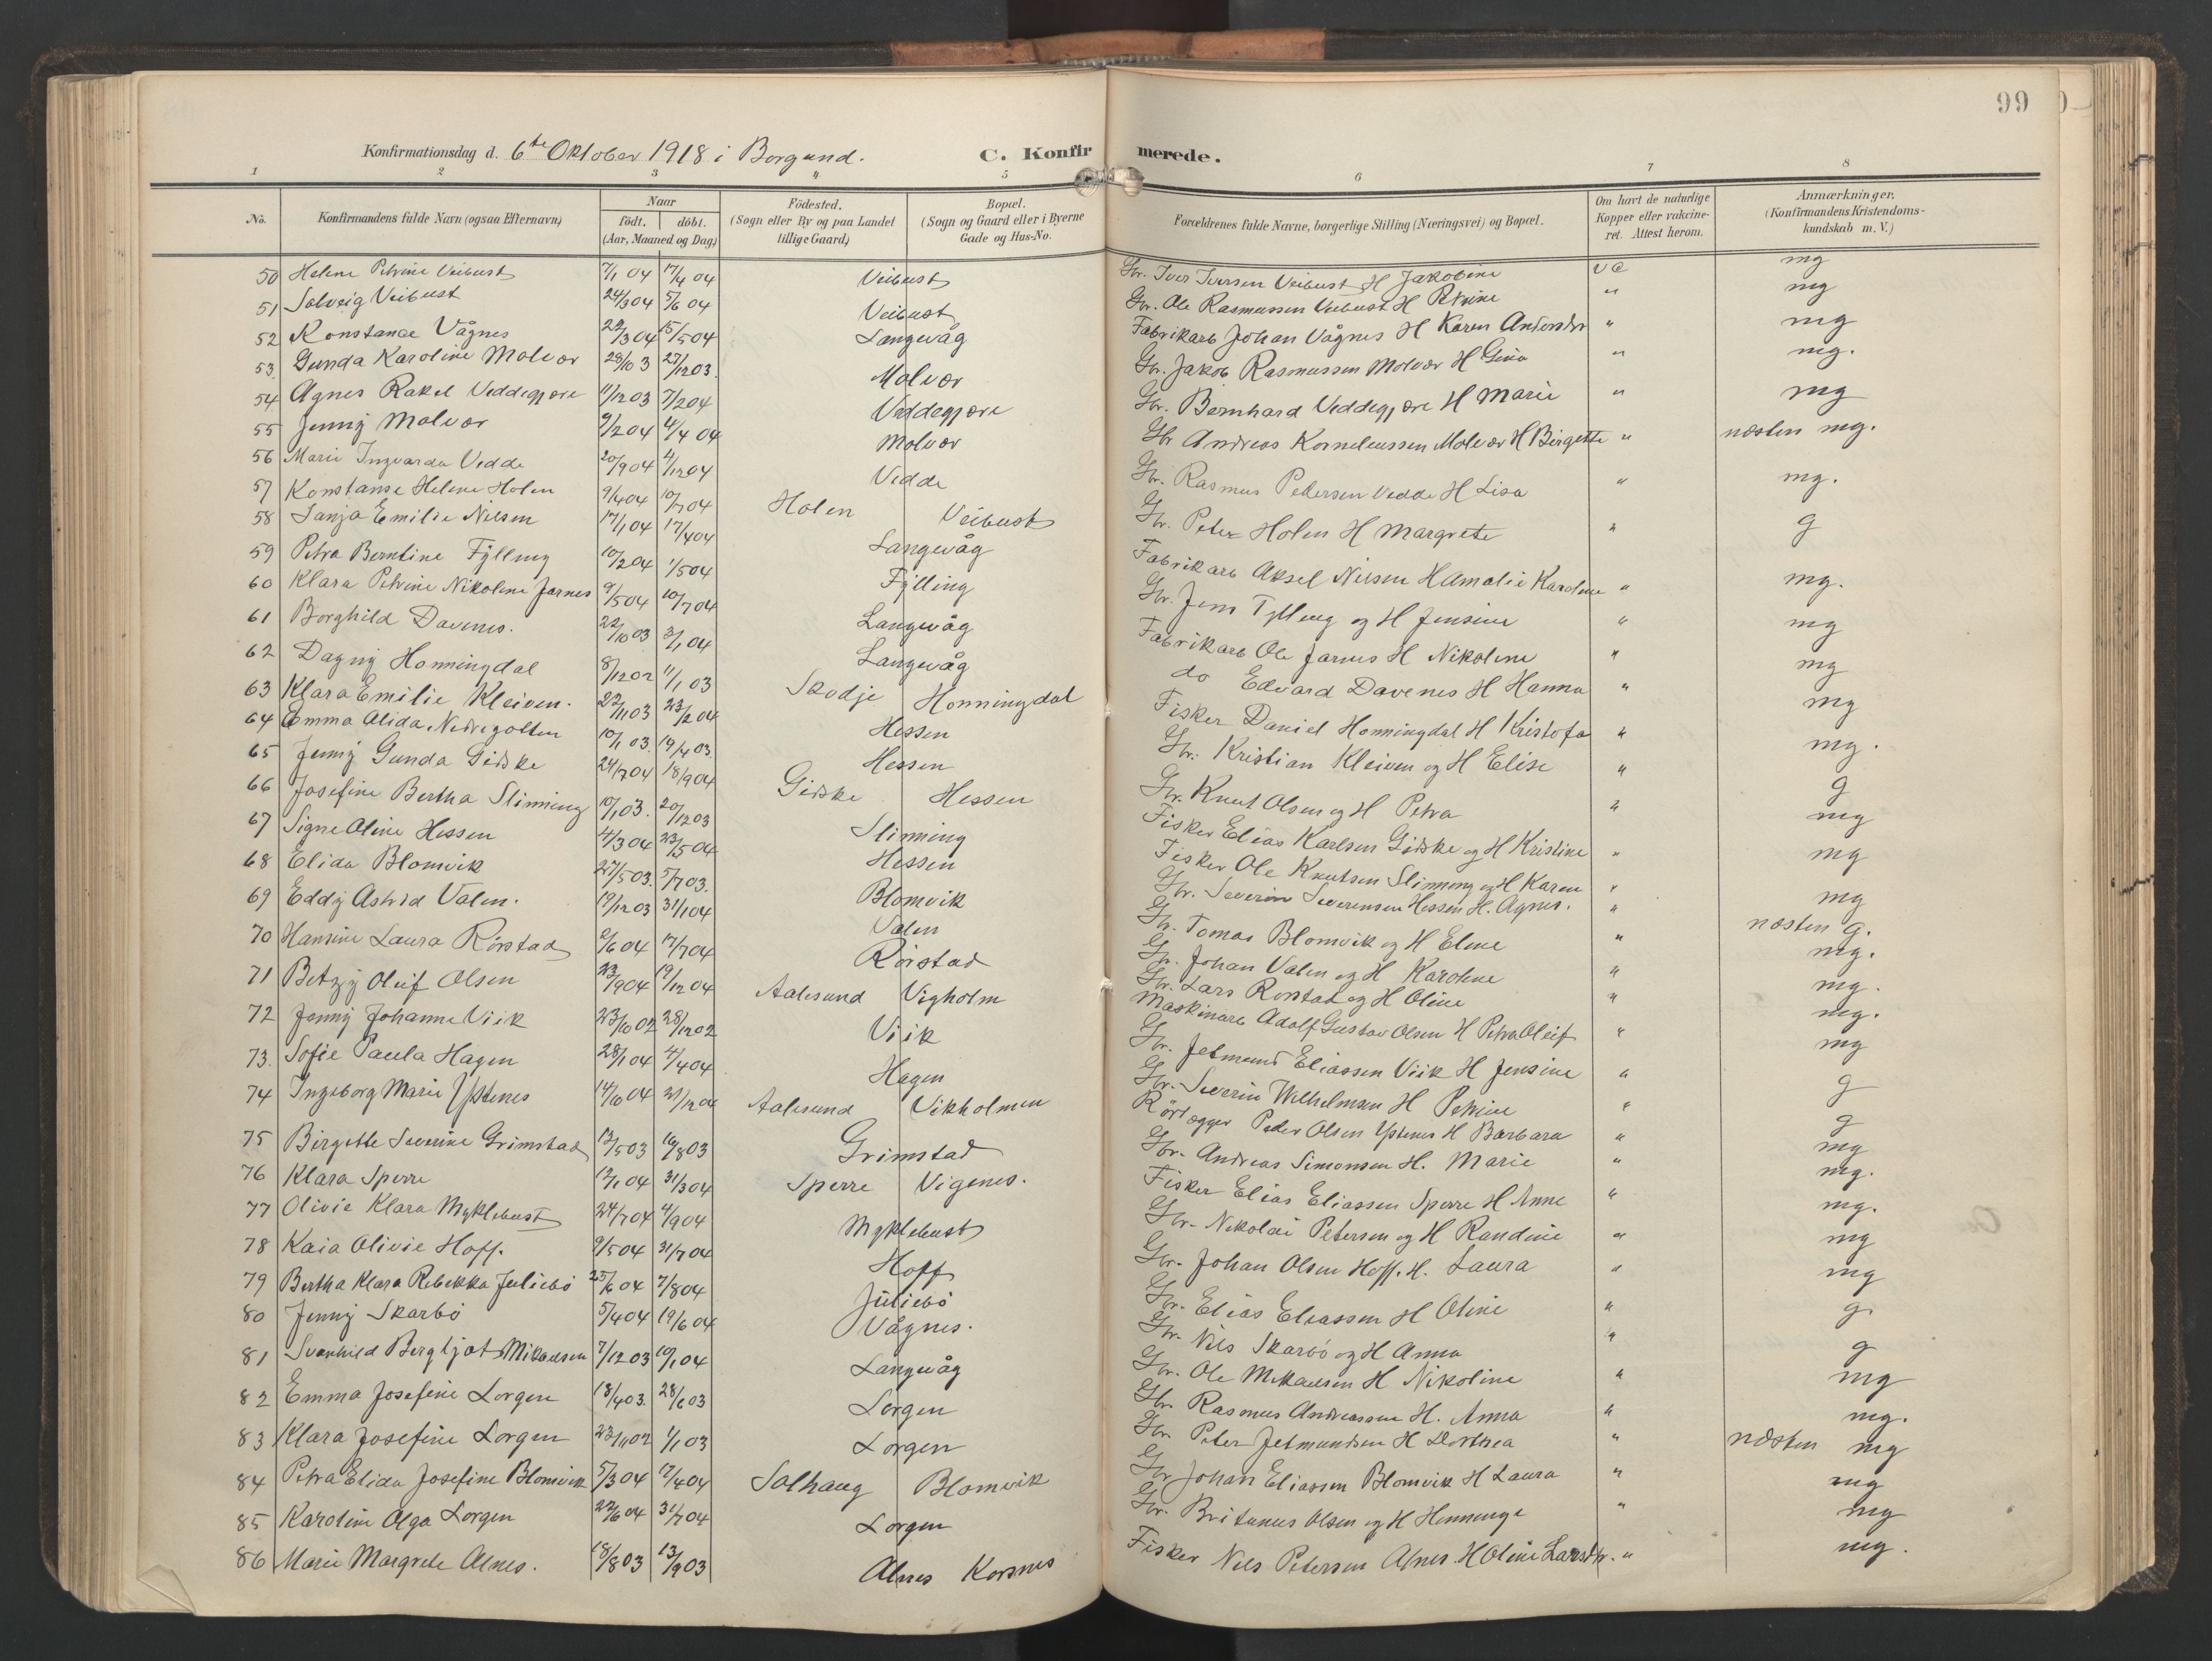 99
Konfirmationsdag d. 6te Oktober 1918 i Borgund. C. Konfirmerede.
1 2 3 4 5 6 7 8
No. Konfirmandens fulde Navn (ogsaa Efternavn) Naar födt. döbt. (Aar, Maaned og Dag) Födested. (Sogn eller By og paa Landet tillige Gaard) Bopæl. (Sogn og Gaard eller i Byerne Gade og Hus-No. Forældrenes fulde Navne, borgerlige Stilling (Næringsvei) og Bopæl. Om havt de naturlige Kopper eller vakcineret. Attest herom. Anmærkninger. (Konfirmandens Kristendomskundskab m. V.)
50 Helene Petrine Veibust 7/1 04 17/4 04 Veibust Gbr. Iver Iversen Veibust H Jakobine va mg
51 Solveig Veibust 24/3 04 5/6 04 Veibust Gbr. Ole Rasmussen Veibust H Petrine " mg
52 Konstanse Vågnes 22/3 04 15/5 04 Langevåg Fabrikarb Johan Vågnes H Karen Andersdr " mg
53. Gunda Karoline Molvær 28/10 3 27/12 03. Molvær Gbr. Jakob Rasmussen Molvær H Gina " mg.
54 Agnes Rakel Veddegjære 11/12 03 7/2 04 Veddegjære Gbr. Bernhard Veddegjære H Marie " mg
55 Jenny Molvær 9/2 04 4/4 04 Molvær Gbr Andreas Korneliussen Molvær H Birgitte " næsten mg.
56 Marie Ingvarda Vedde 20/9 04 4/12 04 Vedde Gbr. Rasmus Pettersen Vedde H Lisa " mg.
57 Konstanse Helene Holen 9/4 04 10/7 04 Holen Veibust Gbr. Peter Holen H Margrete " g
58 Sanja Emilie Nilsen 17/1 04 17/4 04 Langevåg Fabrikarb Aksel Nilsen H Amalie Karoline " mg.
59 Petra Berntine Fylling 10/2 04 1/5 04 Fylling Gbr. Jens Fylling og H Jensine " mg
60 Klara Petrine Nikoline Jarnes 9/5 04 10/7 04 Langevåg Fabrikarb Ole Jarnes H Nikoline " mg
61 Borghild Davenes. 22/10 03 3/1 04 Langevåg do Edvard Davenes H Hanna " mg
62 Dagny Honningdal 8/12 02 11/1 03 Skodje Honningdal Fisker Daniel Honningdal H Kristofa " mg.
63 Klara Emilie Kleiven. 22/11 03 23/2 04 Hessen Gbr. Kristian Kleiven og H Elise " g
64 Emma Alida Nedregotten 10/1 03. 19/4 03. Hessen Gbr. Knut Olsen og H Petra " mg
65 Jenny Gunda Gidske 24/7 04 18/9 04 Gidske Hessen Fisker Elias Karlsen Gidske og H Kristine " mg
66 Josefine Bertha Slinning 10/1 03. 20/12 03 Slinning Fisker Ole Knutsen Slinning og H Karen " mg
67 Signe Oline Hessen 4/3 04 23/5 04 Hessen Gbr. Severin Severinsen Hessen H. Agnes. " næsten g.
68 Elida Blomvik 27/5 03. 5/7 03. Blomvik Gbr. Tomas Blomvik og H Eline " mg.
69 Eddy Astrid Valen. 19/12 03 31/1 04 Valen Gbr. Johan Valen og H Karoline " mg.
70 Hansine Laura Rörstad 2/6 04 17/7 04 Rörstad Gbr. Lars Rorstad og H Oline " mg.
71 Betzy Oleif Olsen 23/9 04 19/12 04 Aalesund Vigholm Maskinarb Adolf Gustav Olsen H Petra Oleif " mg
72 Jenny Johanne Viik 23/10 02 28/12 02 Viik Gbr. Jetmund Eliassen Viik H Jensine " g
73. Sofie Paula Hagen 28/1 04 4/4 04 Hagen Gbr. Severin Wilhelmsen H Petrine " g
74 Ingeborg Marie Ystenes 14/10 04 31/12 04 Aalesund Vikholmen Rörlægger Peder Olsen Ystenes H Barbara " mg
75 Birgitte Severine Grimstad 12/5 03 16/8 03 Grimstad Gbr. Andreas Simonsen H. Marie " mg.
76 Klara Sperre 12/1 04 31/3 04 Sperre Vigenes. Fisker Elias Eliassen Sperre H Anne " mg.
77 Olivie Klara Myklebust 24/7 04 4/9 04 Myklebust Gbr. Nikolai Petersen og H Randine " mg
78 Kaia Olivie Hoff. 9/5 04 31/7 04 Hoff Gbr. Johan Olsen Hoff. H. Laura " mg
79 Bertha Klara Rebekka Juliebö 25/6 04 7/8 04 Juliebö Gbr. Elias Eliassen H Oline " g
80 Jenny Skarbö 5/4 04 19/6 04 Vågnes. Gbr. Nils Skarbö og H Anna " g
81 Svanhild Bergljot Mikaelsen 7/12 03 10/1 04 Langevåg Gbr. Ole Mikaelsen H Nikoline " mg
82 Emma Josefine Lorgen 18/4 03. 28/6 03 Lorgen Gbr. Rasmus Andreassen H. Anna " mg.
83 Klara Josefine Lorgen 23/11 02 1/1 03 Lorgen Gbr. Peter Jetmundsen H Dorthea " næsten mg
84 Petra Elida Josefine Blomvik 5/3 04 17/4 04 Solhaug Blomvik Gbr Johan Eliassen Blomvik H Laura " mg
85 Karoline Olga Lorgen 22/6 04 31/7 04 Lorgen Gbr. Britanus Olsen og H Henninge " mg
86 Marie Margrete Alnes. 18/8 03 13/9 03 Alnes Korsnes Fisker Nils Petersen Alnes H Oline Larsdtr. " mg.